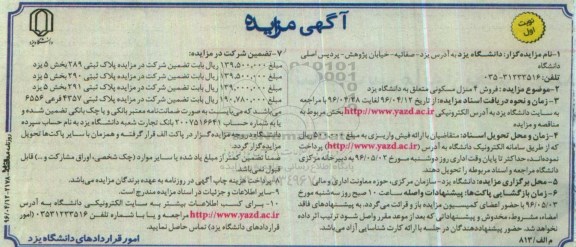 نوبت اول
آگهی مزایده
دانشگاه یزد
۱-نام مزایده گزار: دانشگاه یزد به آدرس یزد- صفائیه- خیابان پژوهش- پردیس اصلی
دانشگاه
تلفن: ۳۱۲۳۳۵۱۶-۰۳۵
۲-موضوع مزایده: فروش ۴ منزل مسکونی متعلق به دانشگاه یزد
۳-زمان و نحوه دریافت اسناد مزایده: از تاریخ ۹۶/۰۴/۱۲ لغایت ۹۶/۰۴/۲۸ با مراجعه
به سایت دانشگاه یزد به آدرس الکترونیکی http://www.yazd.ac.ir بخش مربوط به
مناقصه و مزایده
۴- زمان و محل تحویل اسناد: متقاضیان با ارائه فیش واریزی به مبلغ ریال
که از طریق سامانه الکترونیک دانشگاه به آدرس http://www.yazd.ac.ir پرداخت
نموده‌اند، حداکثر تا پایان وقت اداری روز دوشنبه مورخ ۹۶/۰۵/۰۲ به دبیرخانه مرکزی
دانشگاه مراجعه و اسناد مربوطه را تحویل دهند.
۵- محل برگزاری مزایده: دانشگاه یزد- سازمان مرکزی، حوزه معاونت اداری و مالی
۶- زمان بازگشایی پاکت‌ها: پیشنهادات واصله ساعت ۱۰ صبح روز سه‌شنبه مورخ
۹۶/۰۵/۰۳ با حضور اعضای کمیسیون مزایده باز و قرائت می‌گردد. به پیشنهادهای فاقد
امضاء، مشروط، مخدوش و پیشنهاداتی که بعد از موعد مقرر واصل شود ترتیب اثر داده
نخواهد شد. حضور پیشنهاددهندگان در جلسه با ارائه کارت شناسایی آزاد می‌باشد.
م الف/۸۱۳
۷- تضمین شرکت در مزایده:
مبلغ ۱۳۹،۵۰۰،۰۰۰ ریال بابت تضمین شرکت در مزایده پلاک ثبتی ۲۸۹ بخش ۵ یزد
مبلغ ۱۳۹،۵۰۰،۰۰۰ ریال بابت تضمین شرکت در مزایده پلاک ثبتی ۲۹۰ بخش ۵ یزد
مبلغ ۱۳۹،۰۰۰،۰۰۰ ریال بابت تضمین شرکت در مزایده پلاک ثبتی ۲۹۱ بخش ۵ یزد
مبلغ ۱۹۰،۷۸۰،۰۰۰ ریال بابت تضمین شرکت در مزایده پلاک ثبتی ۴۳۵۷ فرعی ۶۵۵۶
می‌باشد که می‌بایست به صورت ضمانت‌نامه معتبر بانکی و یا چک بانکی تضمین شده و
یا به شماره حساب ۲۰۰۷۵۱۶۶۴۱ بانک تجارت شعبه دانشگاه یزد به نام حساب سپرده
دانشگاه در وجه مزایده گزار در پاکت الف قرار گرفته و همزمان با سایر پاکت‌ها تحویل
مزایده گزار گردد.
ضمناً تضمین کمتر از مبلغ یاد شده یا سایر موارد (چک شخصی، اوراق مشارکت و ...) قابل
قبول نمی‌باشد.
۸- پرداخت هزینه چاپ آگهی در روزنامه به عهده برندگان مزایده می‌باشد.
۹-سایر اطلاعات و جزئیات در اسناد مزایده مندرج است.
۱۰- برای کسب اطلاعات بیشتر به سایت الکترونیکی دانشگاه به آدرس
http://www.yazd.ac.ir مراجعه و یا با شماره تلفن ۰۳۵۳۱۲۳۳۵۱۶ (امور
قراردادهای دانشگاه یزد) تماس حاصل نمایید.
امور قراردادهای دانشگاه یزد